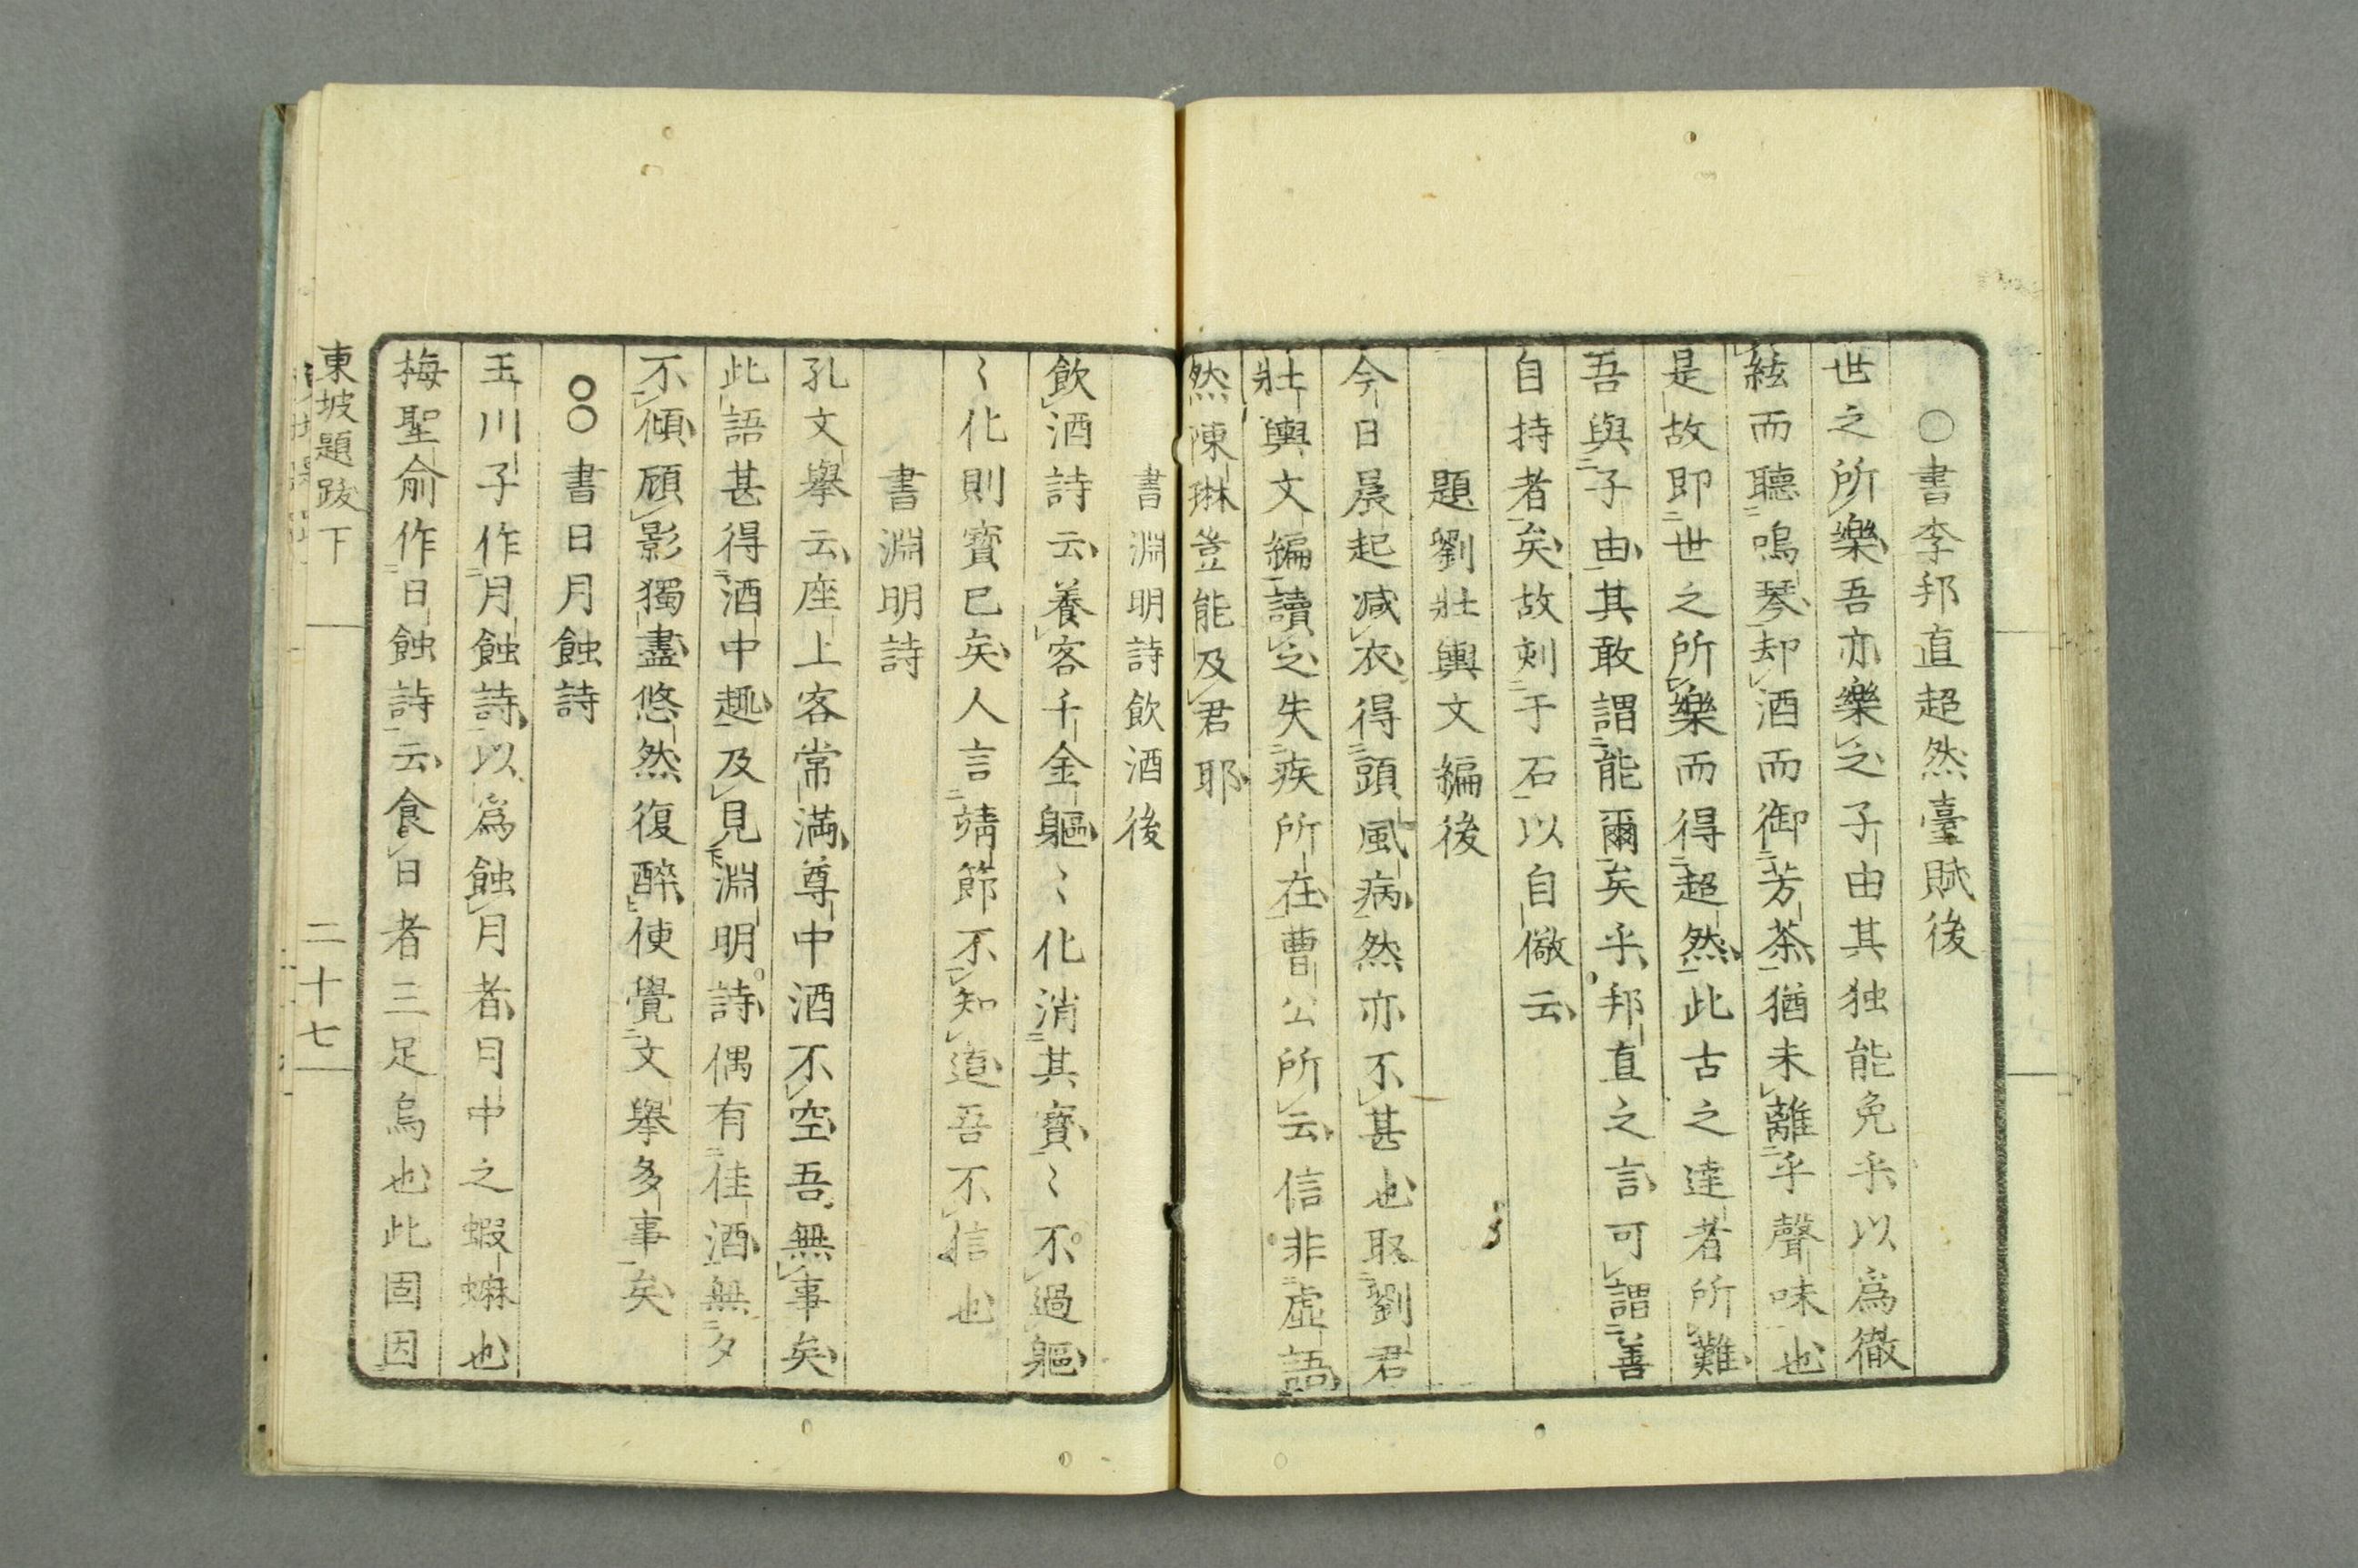 ○書李邦直超然臺賦後
世之所樂吾亦樂之子由其独能免乎以爲徹
絃而聽鳴琴却酒而御芳茶猶未離乎聲味也
是故即世之所樂而得超然此古之達者所難
吾與子由其敢謂能爾矣乎邦直之言可謂善
自持者矣故刻于石以自儆云
題劉壯輿文編後
今日晨起减衣得頭風病然亦不甚也取劉君
壯輿文編讀之失疾所在曹公所云信非虛語
然陳琳豈能及君耶
書淵明詩飲酒後
飲酒詩云養客千金軀〻化消其寶〻不過軀
〻化則寶已矣人言靖節不知道吾不信也
書淵明詩
孔文舉云座上客常滿尊中酒不空吾無事矣
此語甚得酒中趣及見淵明詩偶有佳酒無夕
不傾顧影獨盡悠然復醉使覺文舉多事矣
○○書日月蝕詩
玉川子作月蝕詩以爲蝕月者月中之蝦蟆也
梅聖俞作日蝕詩云食日者三足烏也此固因
東坡題跋下
二十七